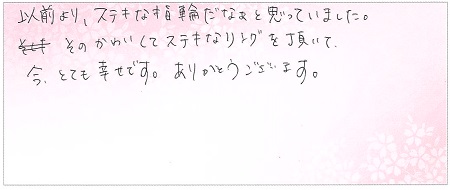 以前より、ステキな指輪だなぁと思っていました。
そのかわいくてステキなリングを頂いて、
今、とても幸せです。ありがとうございます。